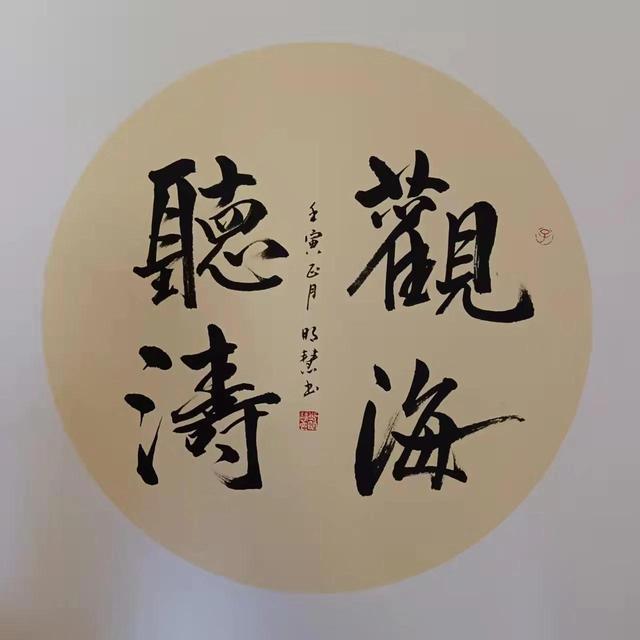 觀海
聽濤
壬寅正月 明慧书